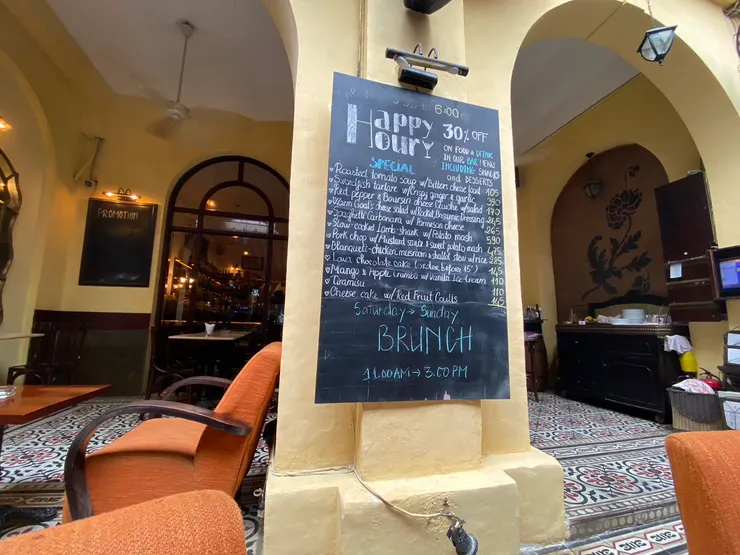 PROMOTION
6:00
Happy Hour
30% OFF
ON FOOD & DRINK
IN OUR BAR MENU
INCLUDING SNACKS
and DESSERTS
SPECIAL
Roasted tomato soup w/ Button cheese toast 105
Swordfish tartare w/ Crispy ginger & garlic 390
Red Pepper & Boursin cheese Quiche w/ Salad 170
Warm Goat's cheese Salad w/ Rocket Balsamic Dressing 245
Spaghetti Carbonara w/ Parmesan cheese 265
Slow-cooked Lamb-shank w/ Potato mash 590
Pork chop w/ Mustard sauce & sweet potato mash 445
Blanquett-chicken, mushroom and shallot stew w/ rice 285
Lava chocolate cake (ordre before 15') 145
Mango & Apple Crumble w/ Vanilla Ice-cream 110
Tiramisu 110
Cheese cake w/ Red Fruit Coulis 145
Saturday → Sunday
BRUNCH
11.00AM → 3.00PM